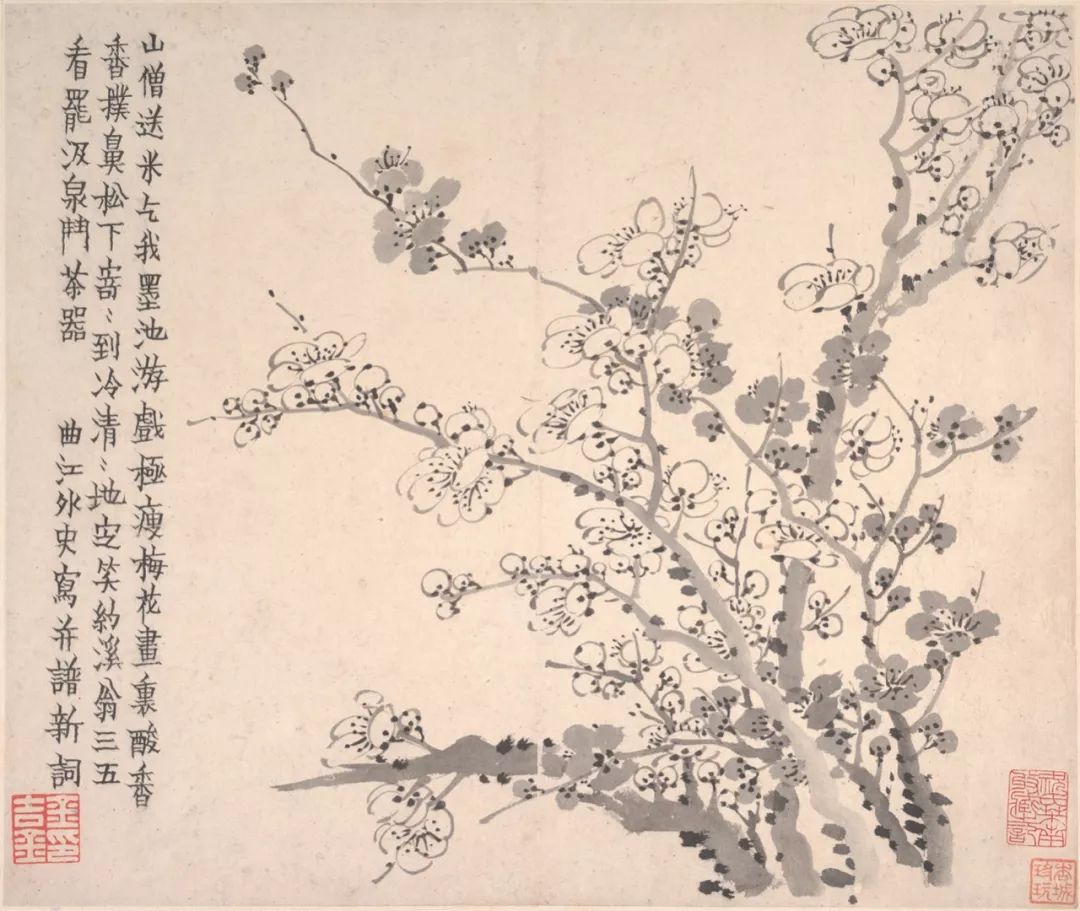 山僧送米乞我墨池游戲極瘦梅花畫裏酸香
香撲鼻松下寄〻到冷清〻地定笑約溪翁三五
看罷汲泉鬥茶器
曲江外史寫并譜新詞
金吉金印